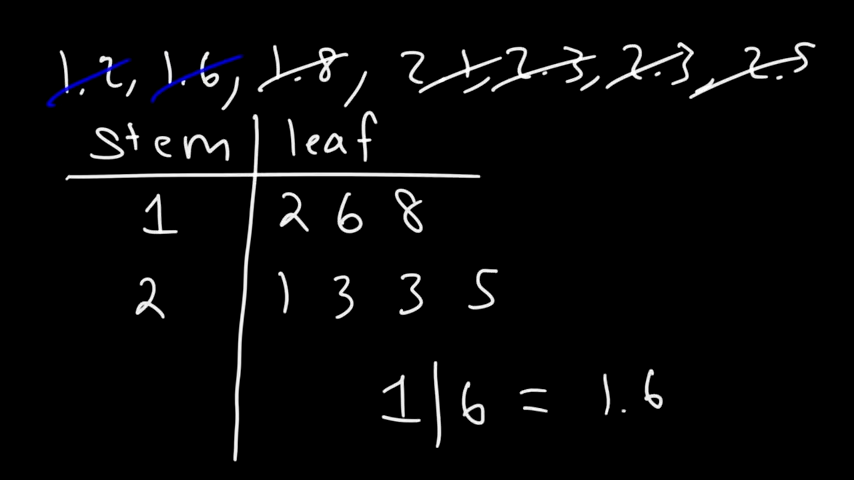 1.2, 1.6, 1.8, 2.1, 2.3, 2.3, 2.5
stem | leaf
1 | 2 6 8
2 | 1 3 3 5
1|6 = 1.6